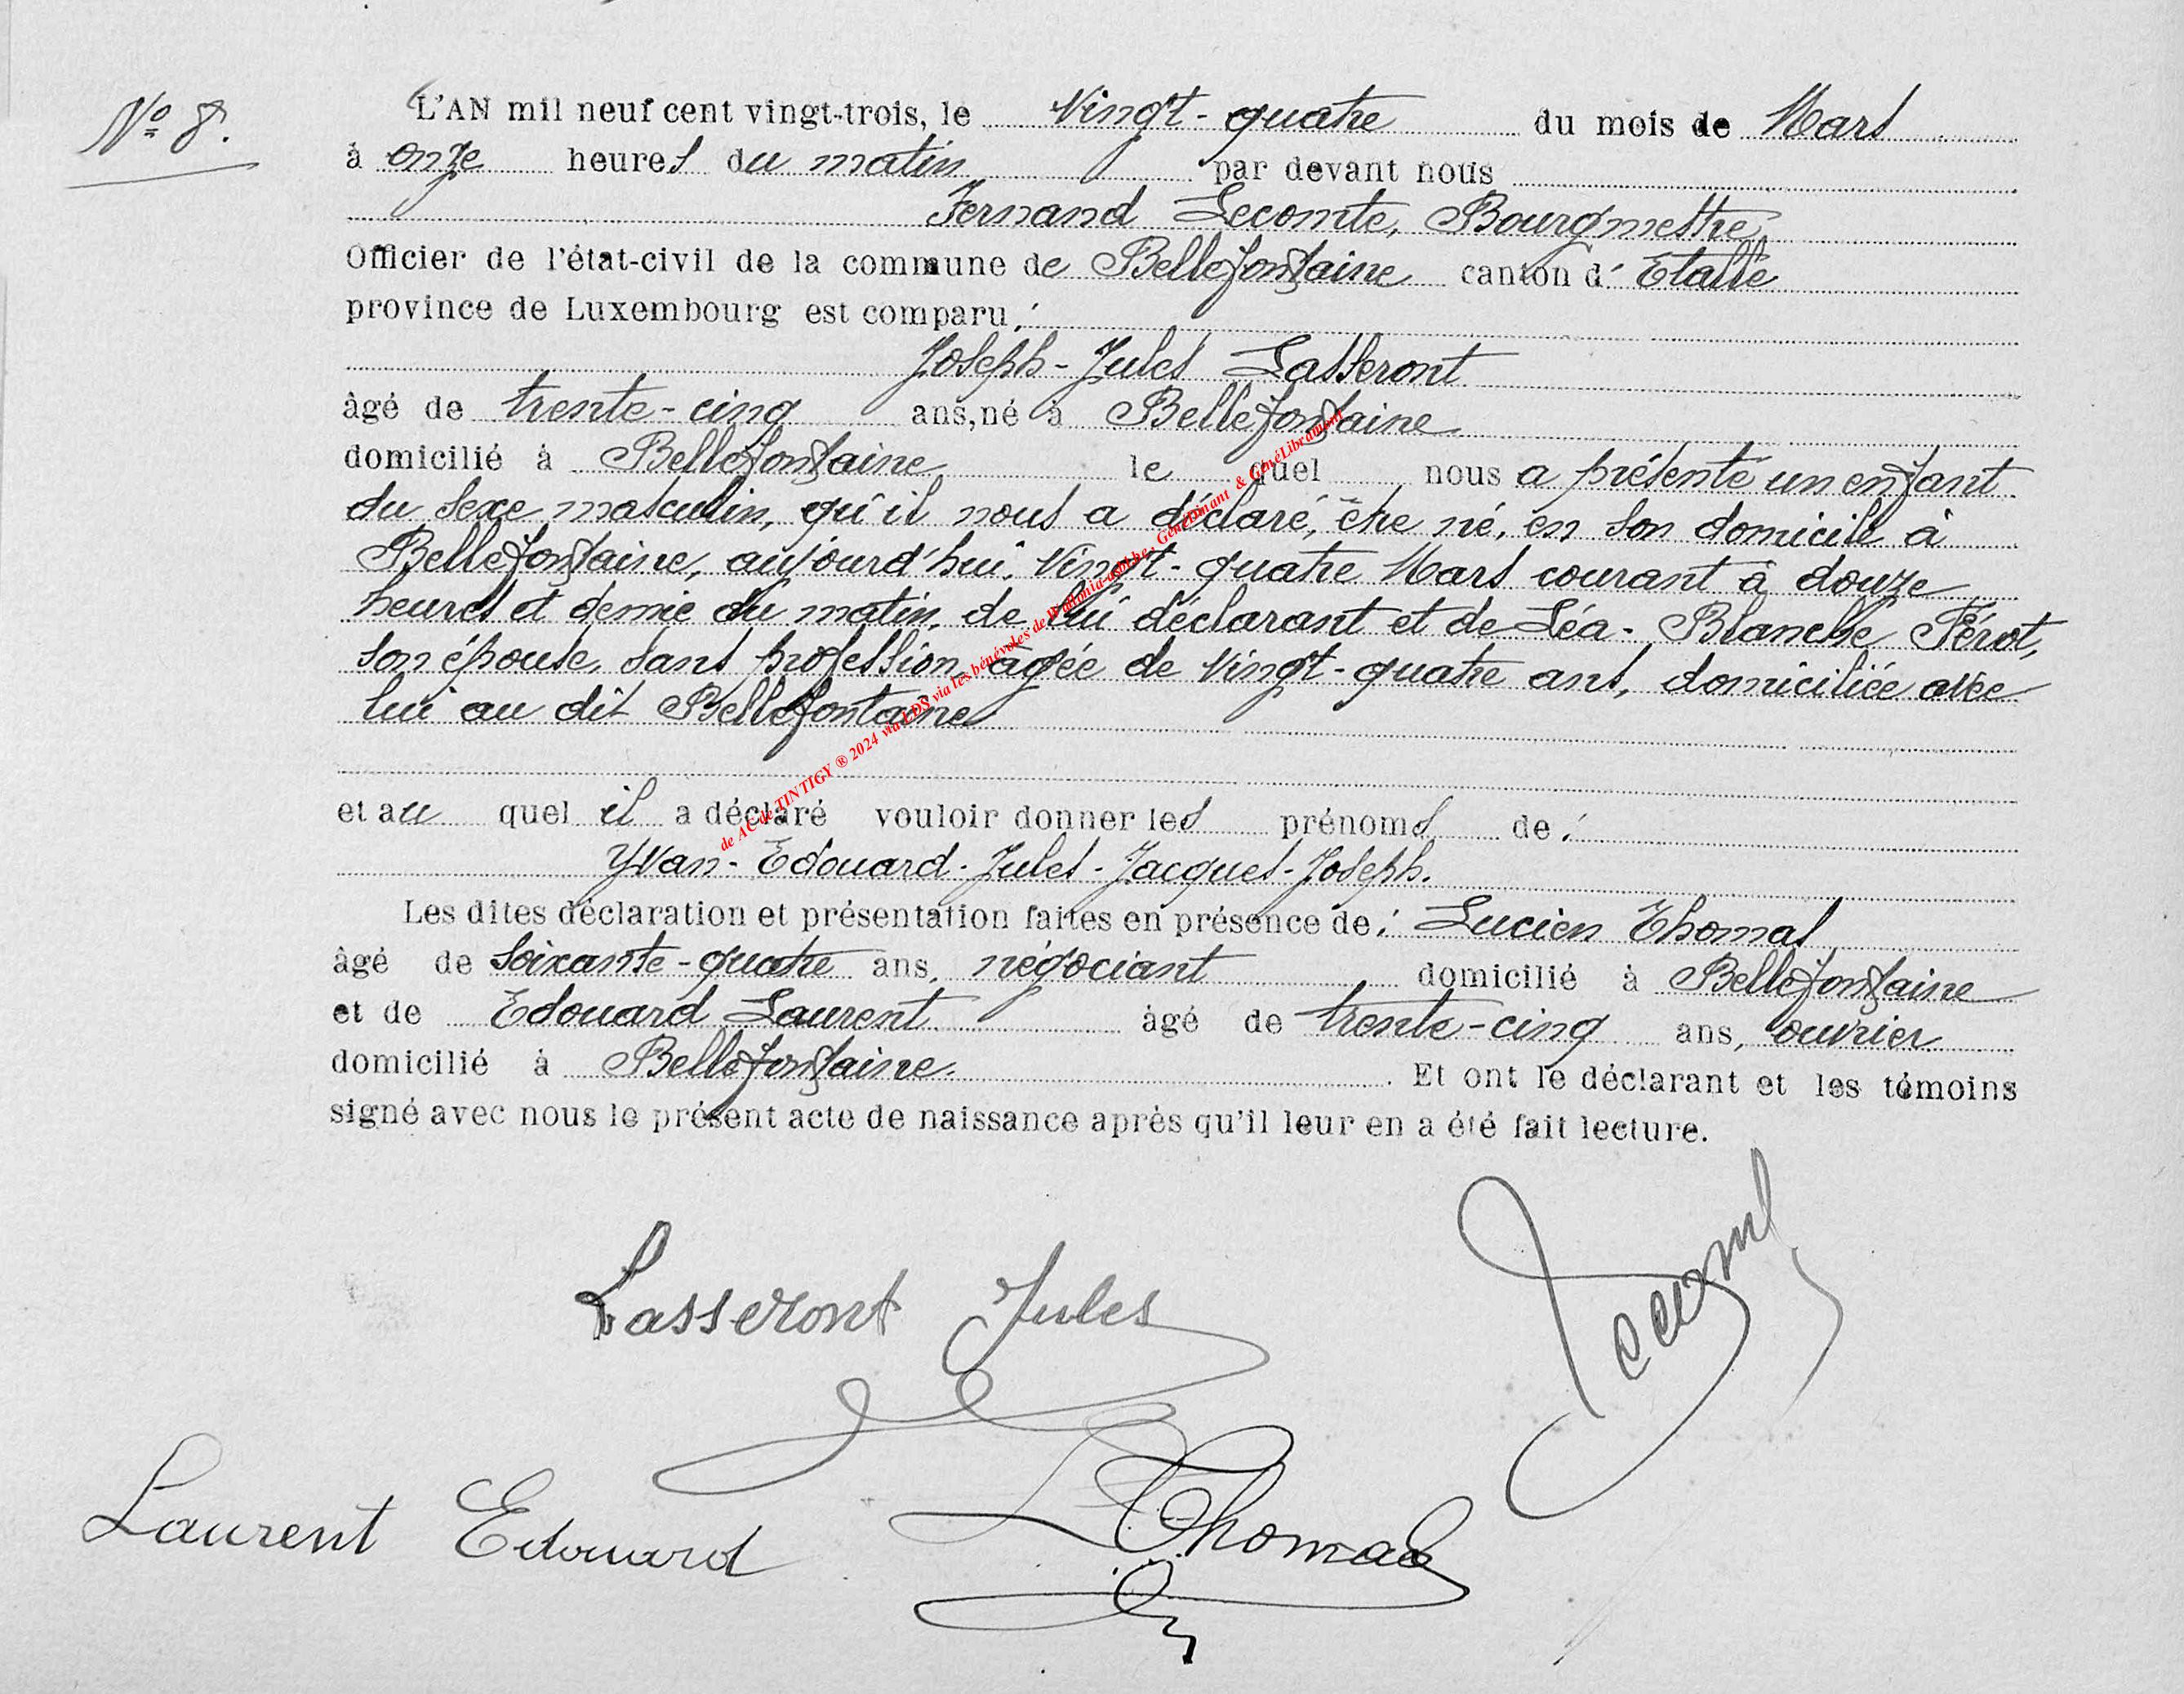 Nº 8.
L'AN mil neuf cent vingt-trois, le Vingt-quatre du mois de Mars
à onze heures du matin par devant nous
Fernand Lecomte, Bourgmestre,
Officier de l'état-civil de la commune de Bellefontaine canton d'Etalle
province de Luxembourg est comparu :
Joseph-Jules Lasseront
âgé de trente-cinq ans, né à Bellefontaine
domicilié à Bellefontaine le quel nous a présenté un enfant
du sexe masculin, qu'il nous a déclaré, être né, en son domicile à
Bellefontaine, aujourd'hui, Vingt-quatre Mars courant à douze
heures et demie du matin, de lui déclarant et de Léa-Blanche Pérot,
son épouse, sans profession, âgée de Vingt-quatre ans, domiciliée avec
lui au dit Bellefontaine
et au quel il a déclaré vouloir donner les prénoms de :
Yvan-Edouard-Jules-Jacques-Joseph.
Les dites déclaration et présentation faites en présence de : Lucien Thomas
âgé de soixante-quatre ans, négociant domicilié à Bellefontaine
et de Edouard Laurent âgé de trente-cinq ans, ouvrier
domicilié à Bellefontaine. Et ont le déclarant et les témoins
signé avec nous le présent acte de naissance après qu'il leur en a été fait lecture.
de AC de TINTIGY ® 2024 via LDS via les bénévoles de Wallonia-asbl.be, GénéDinant & GénéLibramont
Lasseront Jules
Laurent Edouard
L Thomas